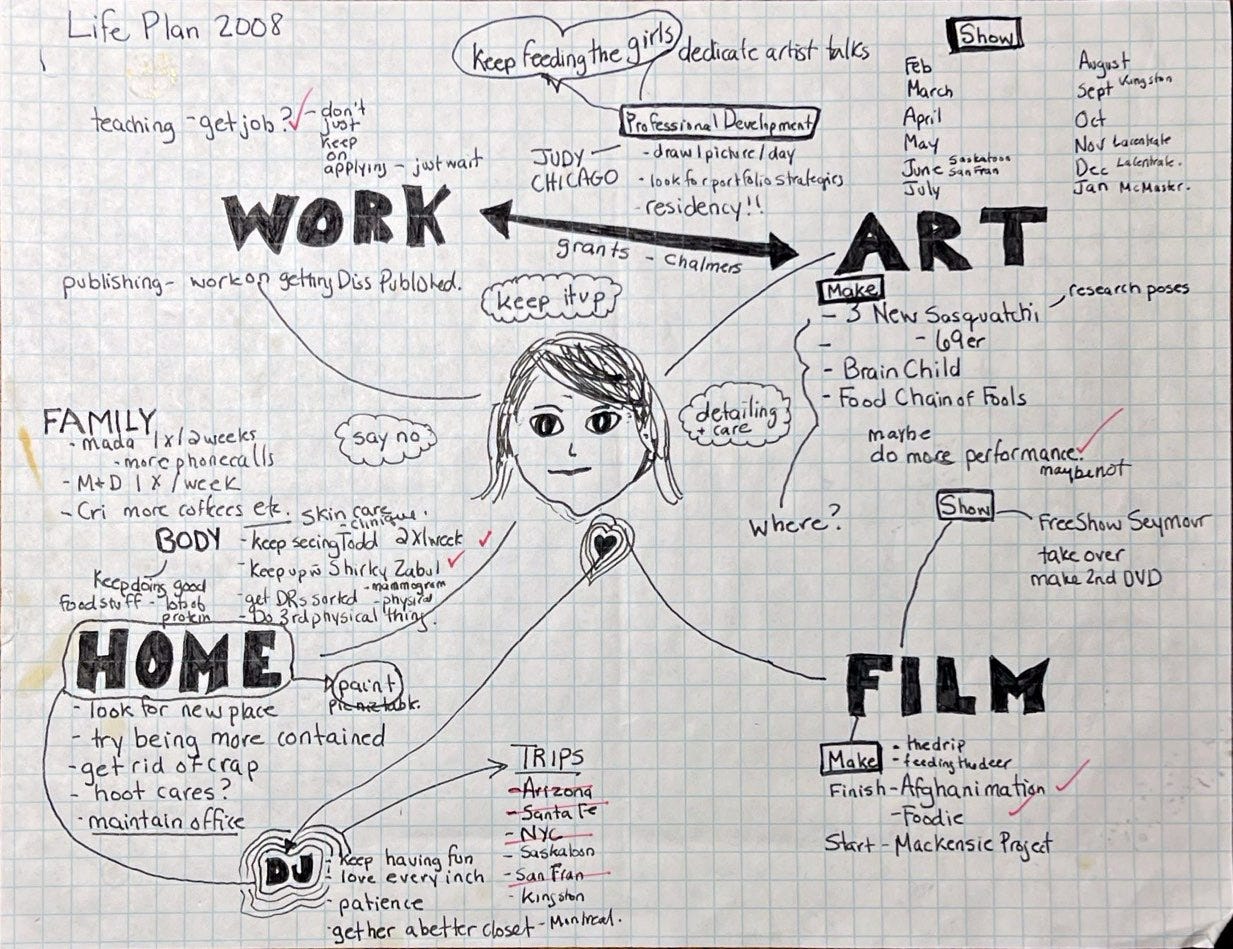 Life Plan 2008
Keep feeding the girls
dedicate artist talks
Show
Feb
March
April
May
June Saskatoon San Fran
July
August
Sept Kingston
Oct
Nov Lacentrale
Dec Lacentrale.
Jan McMaster.
teaching - get job? - don't
just
keep
on
applying - just wait
Professional Development
JUDY
CHICAGO
- draw 1 picture / day
- look for portfolio strategies
- residency!!
WORK
grants - Chalmers
ART
publishing - work on getting Diss Published.
keep it up
Make
- 3 New Sasquatchi
research poses
- - 69er
- Brain Child
- Food Chain of Fools
maybe
do more performance.
maybe not
where?
say no
detailing
+ care
FAMILY
- mada 1x/2weeks
- more phonecalls
- M+D 1X/week
- Cri more coffees etc.
BODY
Skin care
- clinique.
- keep seeing Todd 2X/week
- Keep up w̄ Shirky Zabul
- get DRs sorted - mammogram
- physical
- Do 3rd physical thing.
Keep doing good
food stuff - lots of
protein
HOME
paint
picnic table.
- look for new place
- try being more contained
- get rid of crap
- hoot cares?
- maintain office
Show
Free Show Seymour
take over
make 2nd DVD
FILM
Make
- the drip
- feeding the deer
Finish - Afghanimation
- Foodie
Start - Mackensie Project
TRIPS
- Arizona
- Santa Fe
- NYC
- Saskatoon
- San Fran
- Kingston
- Montreal.
DJ
- keep having fun
- love every inch
- patience
- get her a better closet